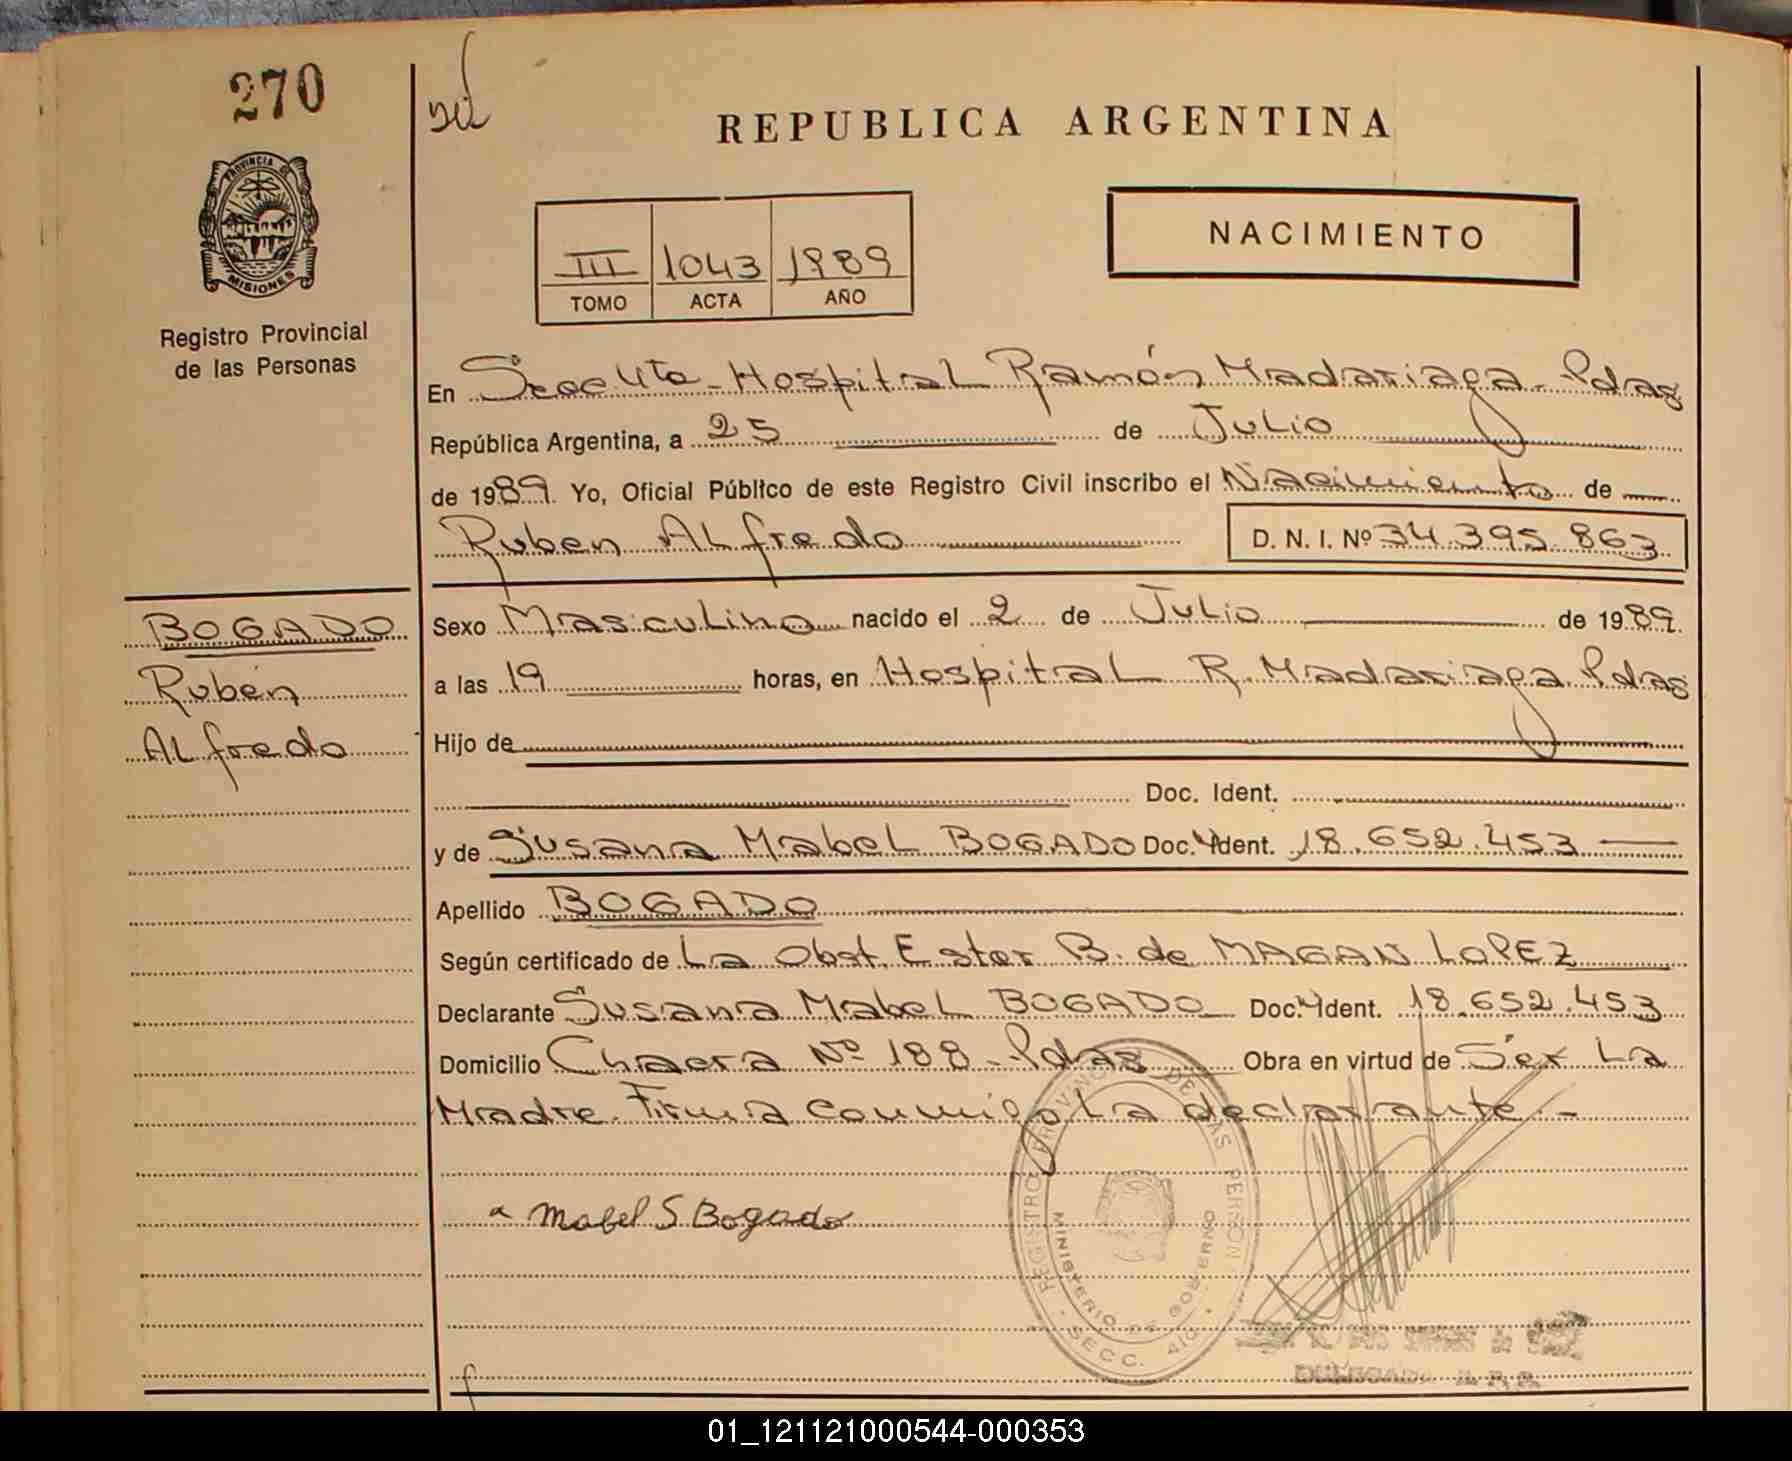 270
PROVINCIA DE
MISIONES
Registro Provincial
de las Personas
REPUBLICA ARGENTINA
NACIMIENTO
III 1043 1989
TOMO ACTA AÑO
En Secc 4ta - Hospital Ramón Madariaga - Pdas
República Argentina, a 25 de Julio
de 1989. Yo, Oficial Público de este Registro Civil inscribo el Nacimiento de
Ruben Alfredo D. N. I. Nº 34.395.863
BOGADO
Rubén
Alfredo
Sexo Masculino nacido el 2 de Julio de 1989.
a las 19 horas, en Hospital R. Madariaga Pdas
Hijo de
Doc. Ident.
y de Susana Mabel BOGADO Doc. Ident. 18.652.453
Apellido BOGADO
Según certificado de La Obst. Ester B. de MAGAN LOPEZ
Declarante Susana Mabel BOGADO Doc. Ident. 18.652.453
Domicilio Chacra Nº 188 - Pdas Obra en virtud de Ser La
Madre. Firma conmigo La declarante. -
Mabel S Bogado
REGISTRO PROVINCIAL DE LAS PERSON
MINISTERIO DE GOBIERNO
SECC. 4ta
DELEGADA R. P. P.
01_121121000544-000353